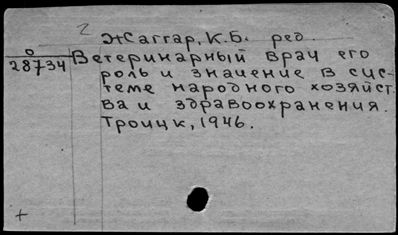 2
Жаггар, К.Б. ред.
О
28734
Ветеринарный врач его
роль и значение в сис-
теме народного хозяйст
ва и здравоохранения.
Троицк, 1946.
+